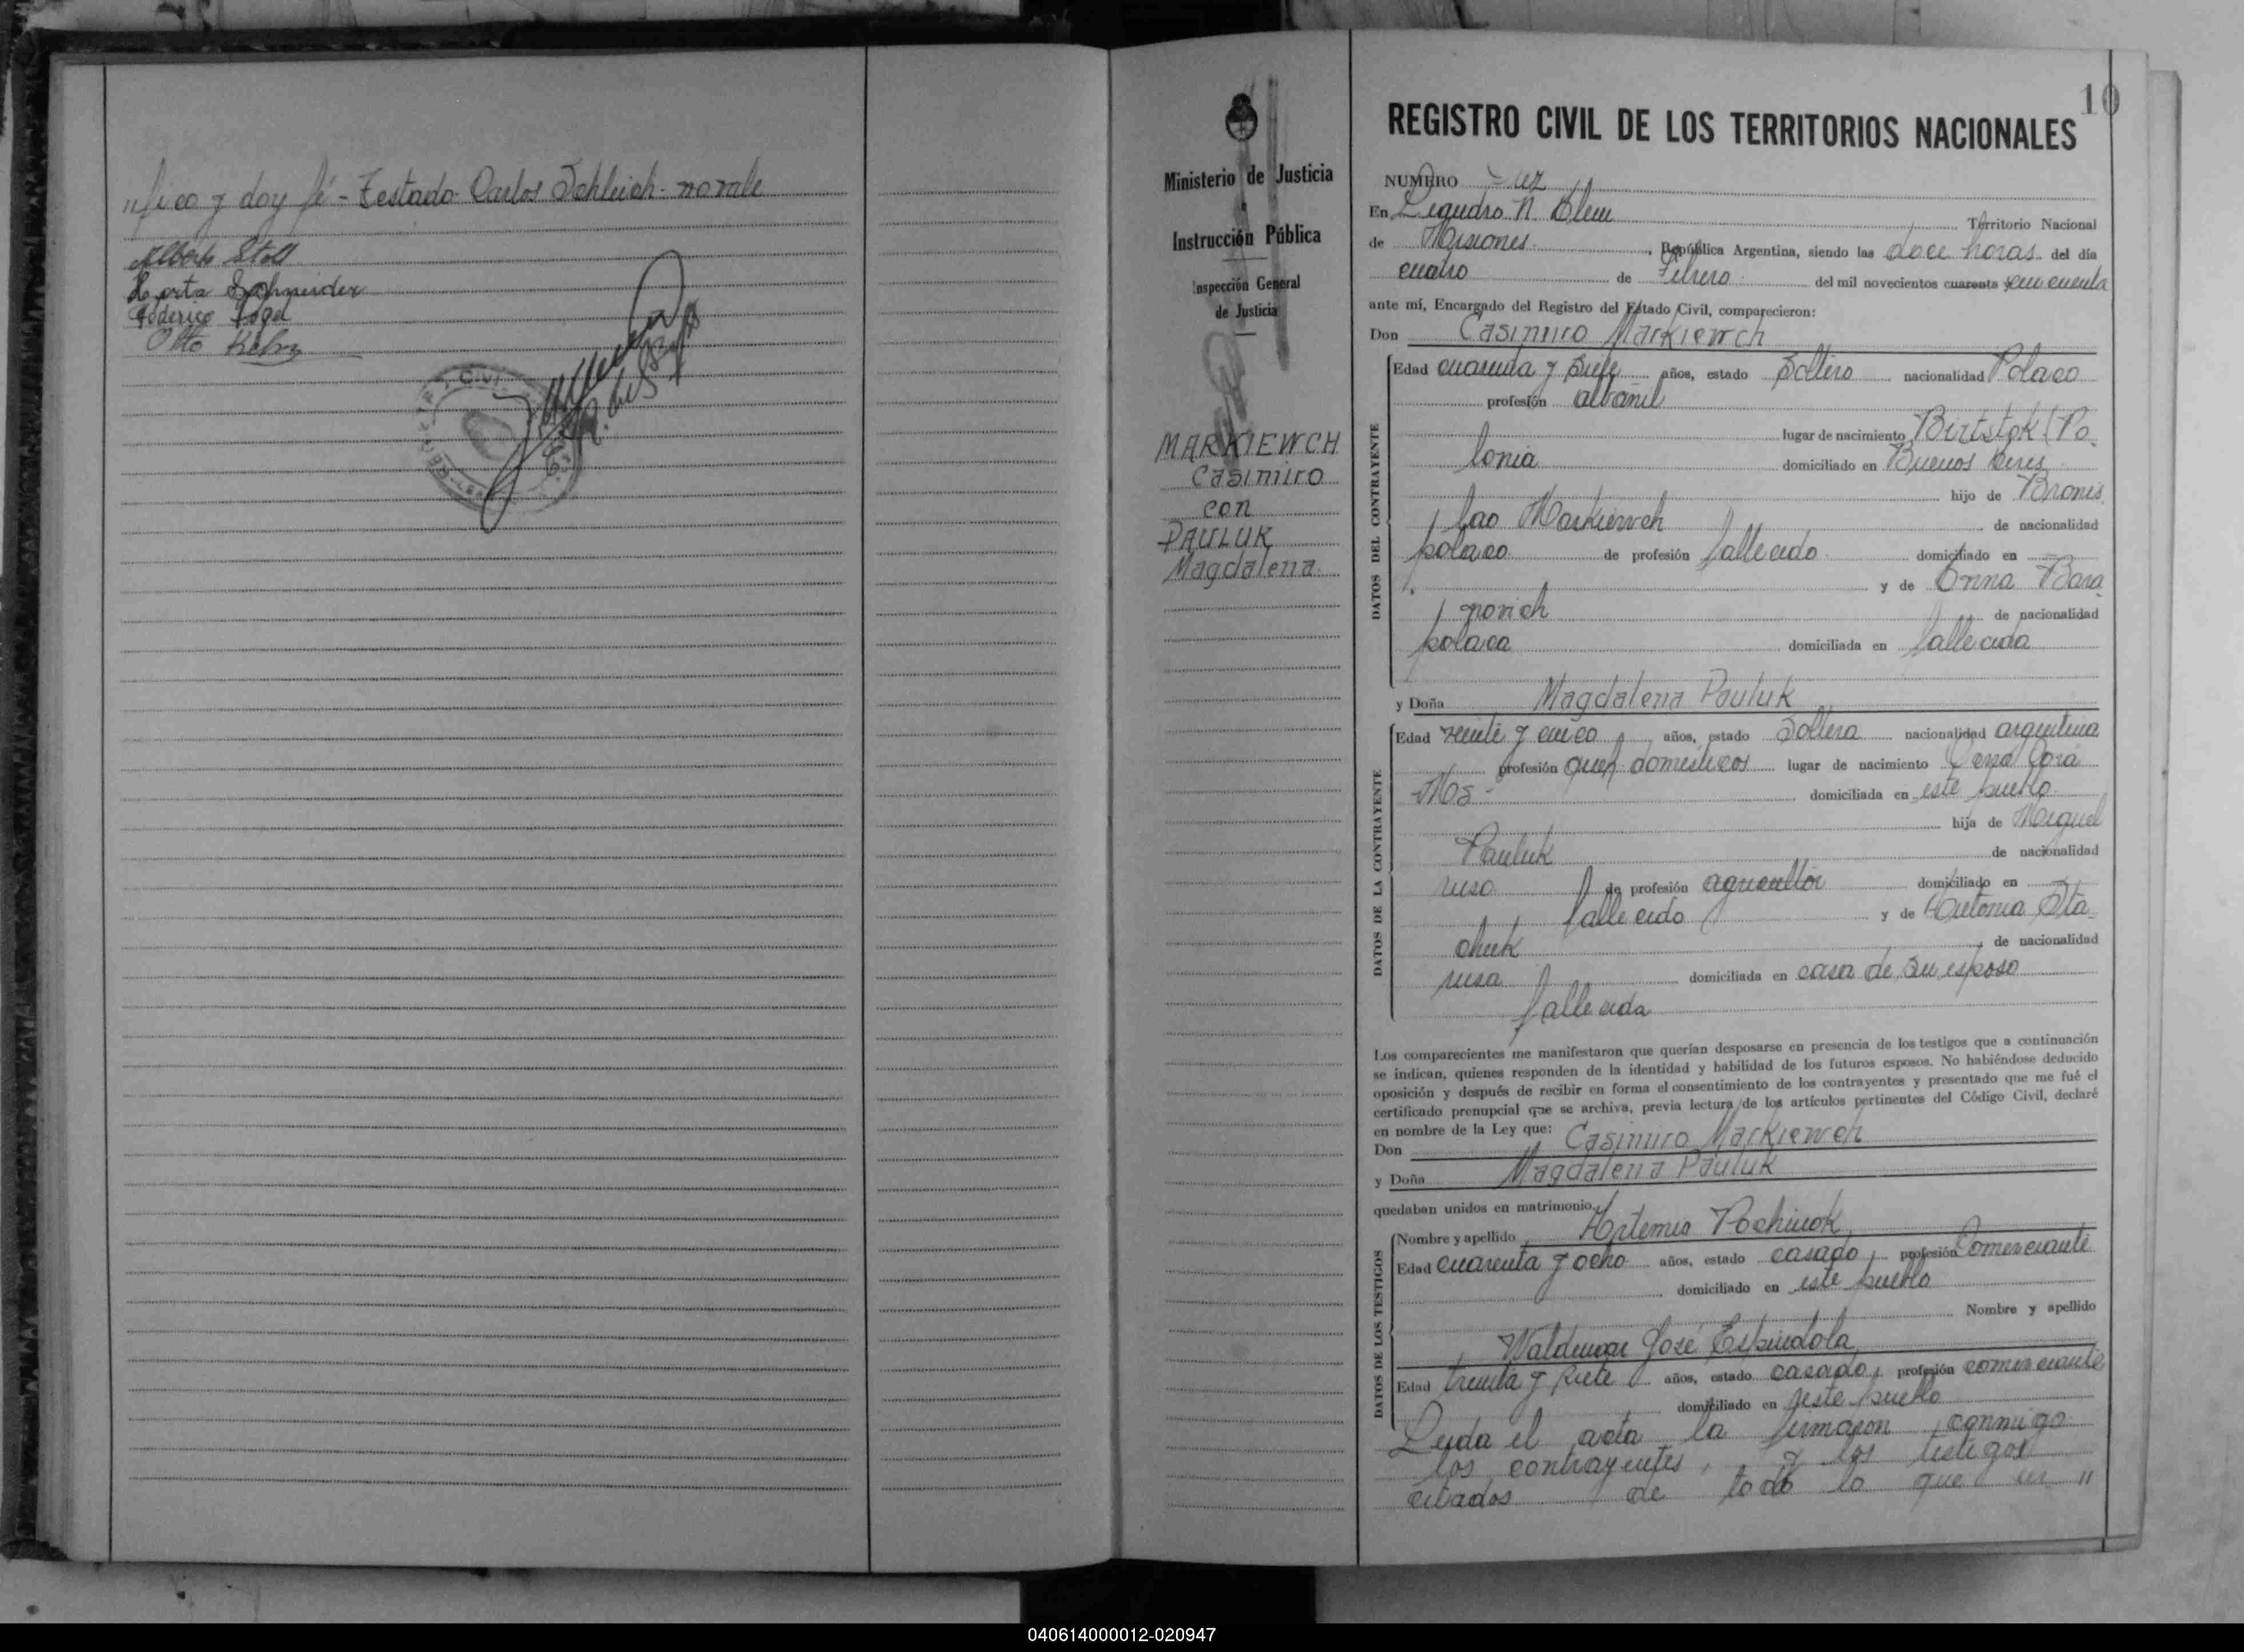 tifico y doy fé - Testado - Carlos Schleich - no vale
Alberto Stoll
Herta Schneider
Foderico Fogel
Otto
10
Ministerio de Justicia
e
Instrucción Pública
Inspección General
de Justicia
MARKIEWCH
Casimiro
con
PAULUK
Magdalena
REGISTRO CIVIL DE LOS TERRITORIOS NACIONALES
NUMERO Diez
En Leandro N. Alem Territorio Nacional
de Misiones, República Argentina, siendo las doce horas del día
cuatro de Febrero del mil novecientos cuarenta y cincuenta
ante mí, Encargado del Registro del Estado Civil, comparecieron:
Don Casimiro Markiewch
DATOS DEL CONTRAYENTE
Edad cuarenta y siete años, estado Soltero nacionalidad Polaco
profesión albanil
lugar de nacimiento Birtstok (Po-
lonia domiciliado en Buenos Aires
hijo de Bronis-
lao Markiewch de nacionalidad
polaco de profesión fallecido domiciliado en
y de Anna Bara-
novich de nacionalidad
polaca domiciliada en fallecida
y Doña Magdalena Pauluk
DATOS DE LA CONTRAYENTE
Edad veinte y cinco años, estado Soltera nacionalidad argentina
profesión queh domesticos lugar de nacimiento Cerro Corá
Mos - domiciliada en este pueblo
hija de Miguel
Pauluk de nacionalidad
ruso de profesión agricultor domiciliado en
fallecido y de Antonia Sta-
chuk, de nacionalidad
rusa domiciliada en casa de su esposo
fallecida
Los comparecientes me manifestaron que querían desposarse en presencia de los testigos que a continuación
se indican, quienes responden de la identidad y habilidad de los futuros esposos. No habiéndose deducido
oposición y después de recibir en forma el consentimiento de los contrayentes y presentado que me fué el
certificado prenupcial que se archiva, previa lectura de los artículos pertinentes del Código Civil, declaré
en nombre de la Ley que:
Don Casimiro Markiewch
y Doña Magdalena Pauluk
quedaban unidos en matrimonio.
DATOS DE LOS TESTIGOS
Nombre y apellido Artemio Pochinok
Edad cuarenta y ocho años, estado casado, profesión Comerciante
domiciliado en este pueblo
Nombre y apellido
Waldemar José Espindola
Edad treinta y siete años, estado casado, profesión comerciante
domiciliado en este pueblo
Leida el acta la firmaron conmigo
los contrayentes, y los testigos
citados de todo lo que cer "
040614000012-020947